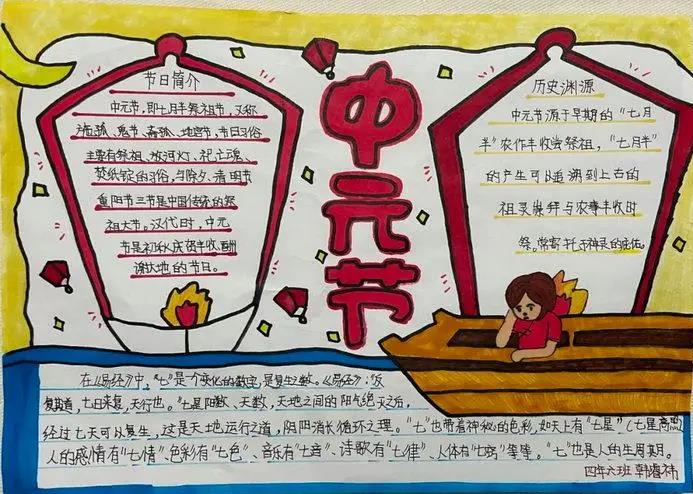 中元节
节日简介
中元节，即七月半祭祖节，又称
施孤、鬼节、斋孤、地官节，节日习俗
主要有祭祖、放河灯、祀亡魂、
焚纸锭的习俗，与除夕、清明节
重阳节三节是中国传统的祭
祖大节。汉代时，中元
节是初秋庆贺丰收、酬
谢大地的节日。
历史渊源
中元节源于早期的“七月
半”农作丰收尝祭祖，“七月半”
的产生可以追溯到上古的
祖灵崇拜与农事丰收时
祭。常寄托于神灵的庇佑。
在《易经》中，“七”是个变化的数字，是复生之数。《易经》：“反
复其道，七日来复，天行也。”七是阳数、天数，天地之间的阳气绝灭之后，
经过七天可以复生，这是天地运行之道，阴阳消长循环之理。“七”也带着神秘的色彩，如天上有“七星”（七星高照）
人的感情有“七情”、色彩有“七色”、音乐有“七音”、诗歌有“七律”、人体有“七窍”等等。“七”也是人的生周期。
四年六班 韩睿祎